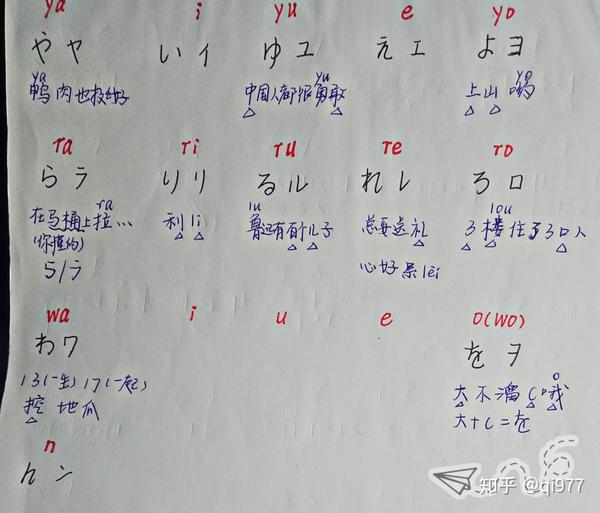 ya i yu e yo
やヤ いイ ゆユ えエ よヨ
ya yu yo
鸭肉也好 中国人都很勇敢 上山哟
ra ri ru re ro
らラ りリ るル れレ ろロ
ra lu lou
在马桶上拉… 利li 鲁迅有儿子 总要送礼 3楼住了3口人
(你懂的)
ら/ラ 心好累lei
wa i u e o(wo)
わワ をヲ
13(一生)17(一起) o
挖地瓜 大不溜C哦
大+C=を
n
んン
知乎 @qi977